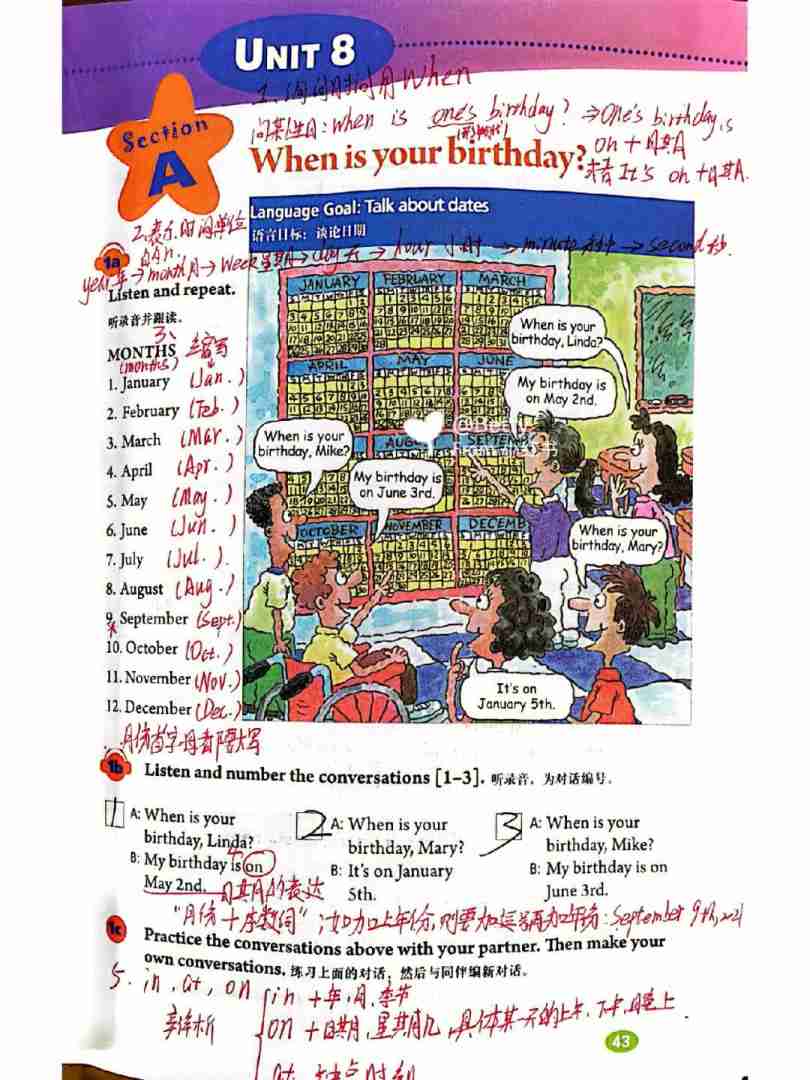 UNIT 8
1、询问时间用When
Section
A
问某人生日：when is one's birthday? ⇒One's birthday is
on +日期
When is your birthday?
或者It's on +日期.
Language Goal: Talk about dates
语言目标：谈论日期
2.表示时间单位
year 年→month月→week星期→day天→hour 小时→minute 分钟→second秒.
1a
Listen and repeat.
听录音并跟读。
3、
MONTHS 缩写
(months)
1. January (Jan.)
2. February (Feb.)
3. March (Mar.)
4. April (Apr.)
5. May (May.)
6. June (Jun.)
7. July (Jul.)
8. August (Aug.)
9. September (Sept.)
10. October (Oct.)
11. November (Nov.)
12. December (Dec.)
月份首字母都要大写
JANUARY FEBRUARY MARCH
APRIL MAY JUNE
AUGU SEPTEMB
OCTOBER NOVEMBER DECEMB
When is your
birthday, Linda?
My birthday is
on May 2nd.
When is your
birthday, Mike?
My birthday is
on June 3rd.
When is your
birthday, Mary?
It's on
January 5th.
1b
Listen and number the conversations [1–3]. 听录音，为对话编号。
1
A: When is your
birthday, Linda?
B: My birthday is on
May 2nd.
2
A: When is your
birthday, Mary?
B: It's on January
5th.
3
A: When is your
birthday, Mike?
B: My birthday is on
June 3rd.
4
日期的表达
"月份+序数词"；如加上年份，则要加逗号再加年份：September 9th, 2021
1c
Practice the conversations above with your partner. Then make your
own conversations. 练习上面的对话，然后与同伴编新对话。
5. in, at, on
辨析
in +年,月,季节
on +日期,星期几,具体某一天的上午、下午、晚上
43